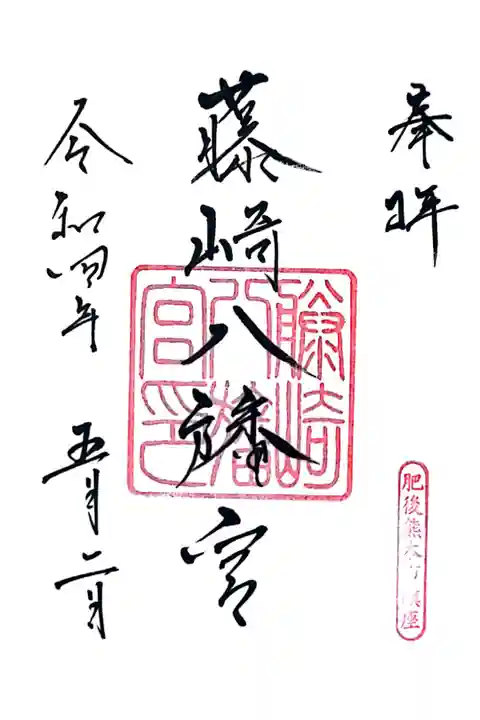 奉拝
肥後熊本市鎮座
藤崎八旛宮
藤崎八旛宮印
令和四年 五月二日